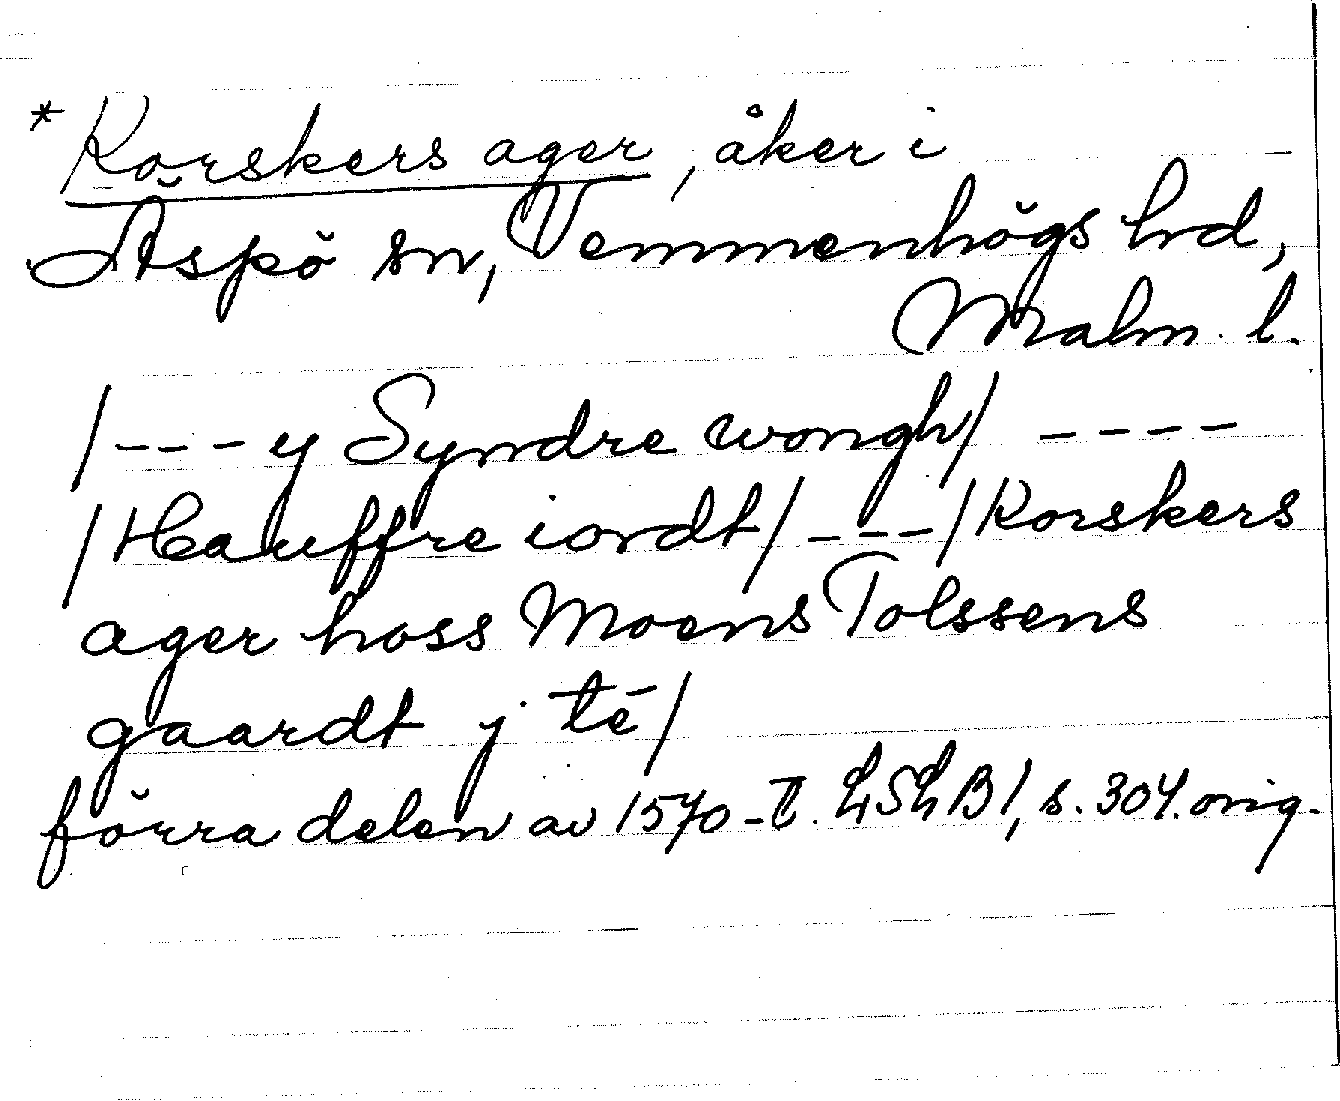 * Korskers ager, åker i
Äspö sn, Vemmenhögs hd,
Malm. l.
/---y Syndre wongh/ ----
/Hauffre iordt/---/Korskers
ager hoss Moens Tolssens
gaardt y té/
förra delen av 1570-t. LSLB1, s. 304. orig.